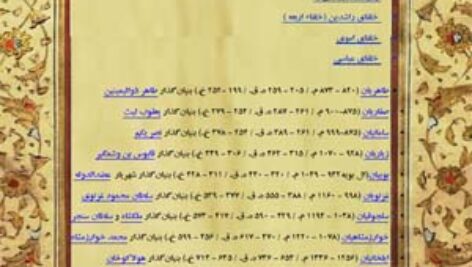 خلفای راشدین (خلفاء اربعه )
خلفای اموی
خلفای عباسی
طاهریان (۸۲۰ - ۸۷۳ م. / ۲۰۵ - ۲۵۹ ه. ق. / ۱۹۹ - ۲۵۲ خ.) بنیان‌گذار طاهر ذوالیمینین
صفاریان (۸۷۵-۹۰۰ م. / ۲۶۱ - ۲۸۷ ه. ق. / ۲۵۴ - ۲۷۹ خ.) بنیان‌گذار یعقوب لیث
سامانیان (۸۷۵-۹۹۹ م. / ۲۶۱ - ۳۸۹ ه. ق. / ۲۵۴ - ۳۷۸ خ.) بنیان‌گذار نصر یکم
زیاریان (۹۲۸ - ۱۰۷۰ م. / ۳۱۵ - ۴۶۲ ه. ق. / ۳۰۶ - ۴۴۹ خ.) بنیان‌گذار قابوس بن وشمگیر
بوییان(آل بویه ۹۳۲ - ۱۰۲۹ م. / ۳۲۰ - ۴۲۰ ه. ق. / ۳۱۱ - ۴۲۸ خ.) بنیان‌گذار شهریار عضدالدوله
غزنویان (۹۹۸ - ۱۱۶۰ م. / ۳۸۸ - ۵۵۵ ه. ق. / ۳۷۷ - ۵۳۹ خ.) بنیان‌گذار سلطان محمود غزنوی
سلجوقیان (۱۰۳۸ - ۱۱۹۴ م. / ۴۲۹ - ۵۹۰ ه. ق. / ۴۱۷ - ۵۷۳ خ.) بنیان‌گذار ملکشاه و سلطان سنجر
خوارزمشاهیان (۱۰۷۸ - ۱۲۲۰ م. / ۴۷۰ - ۶۱۷ ه. ق. / ۴۵۶ - ۵۹۹ خ.) بنیان‌گذار محمد خوارزمشاه
ایلخانیان (۱۲۵۶ - ۱۳۳۶ م. / ۶۵۴ - ۷۳۶ ه. ق. / ۶۳۵ - ۷۱۴ خ.) بنیان‌گذار هولاکوخان